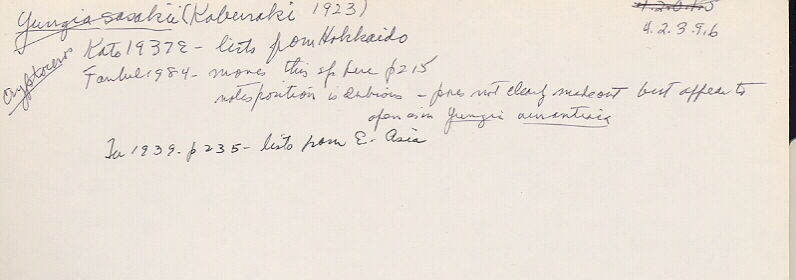 Yungia sasakii (Kaburaki 1923)
4.2.3.9.6
Cryptoceros
Kato 1937E - lists from Hokkaido
Faubel 1984 - moves this sp here p 215
notes position is dubious - pores not clearly made out but appear to
open as in Yungia aurantiaca
1939 - p 235 - lists from E. Asia